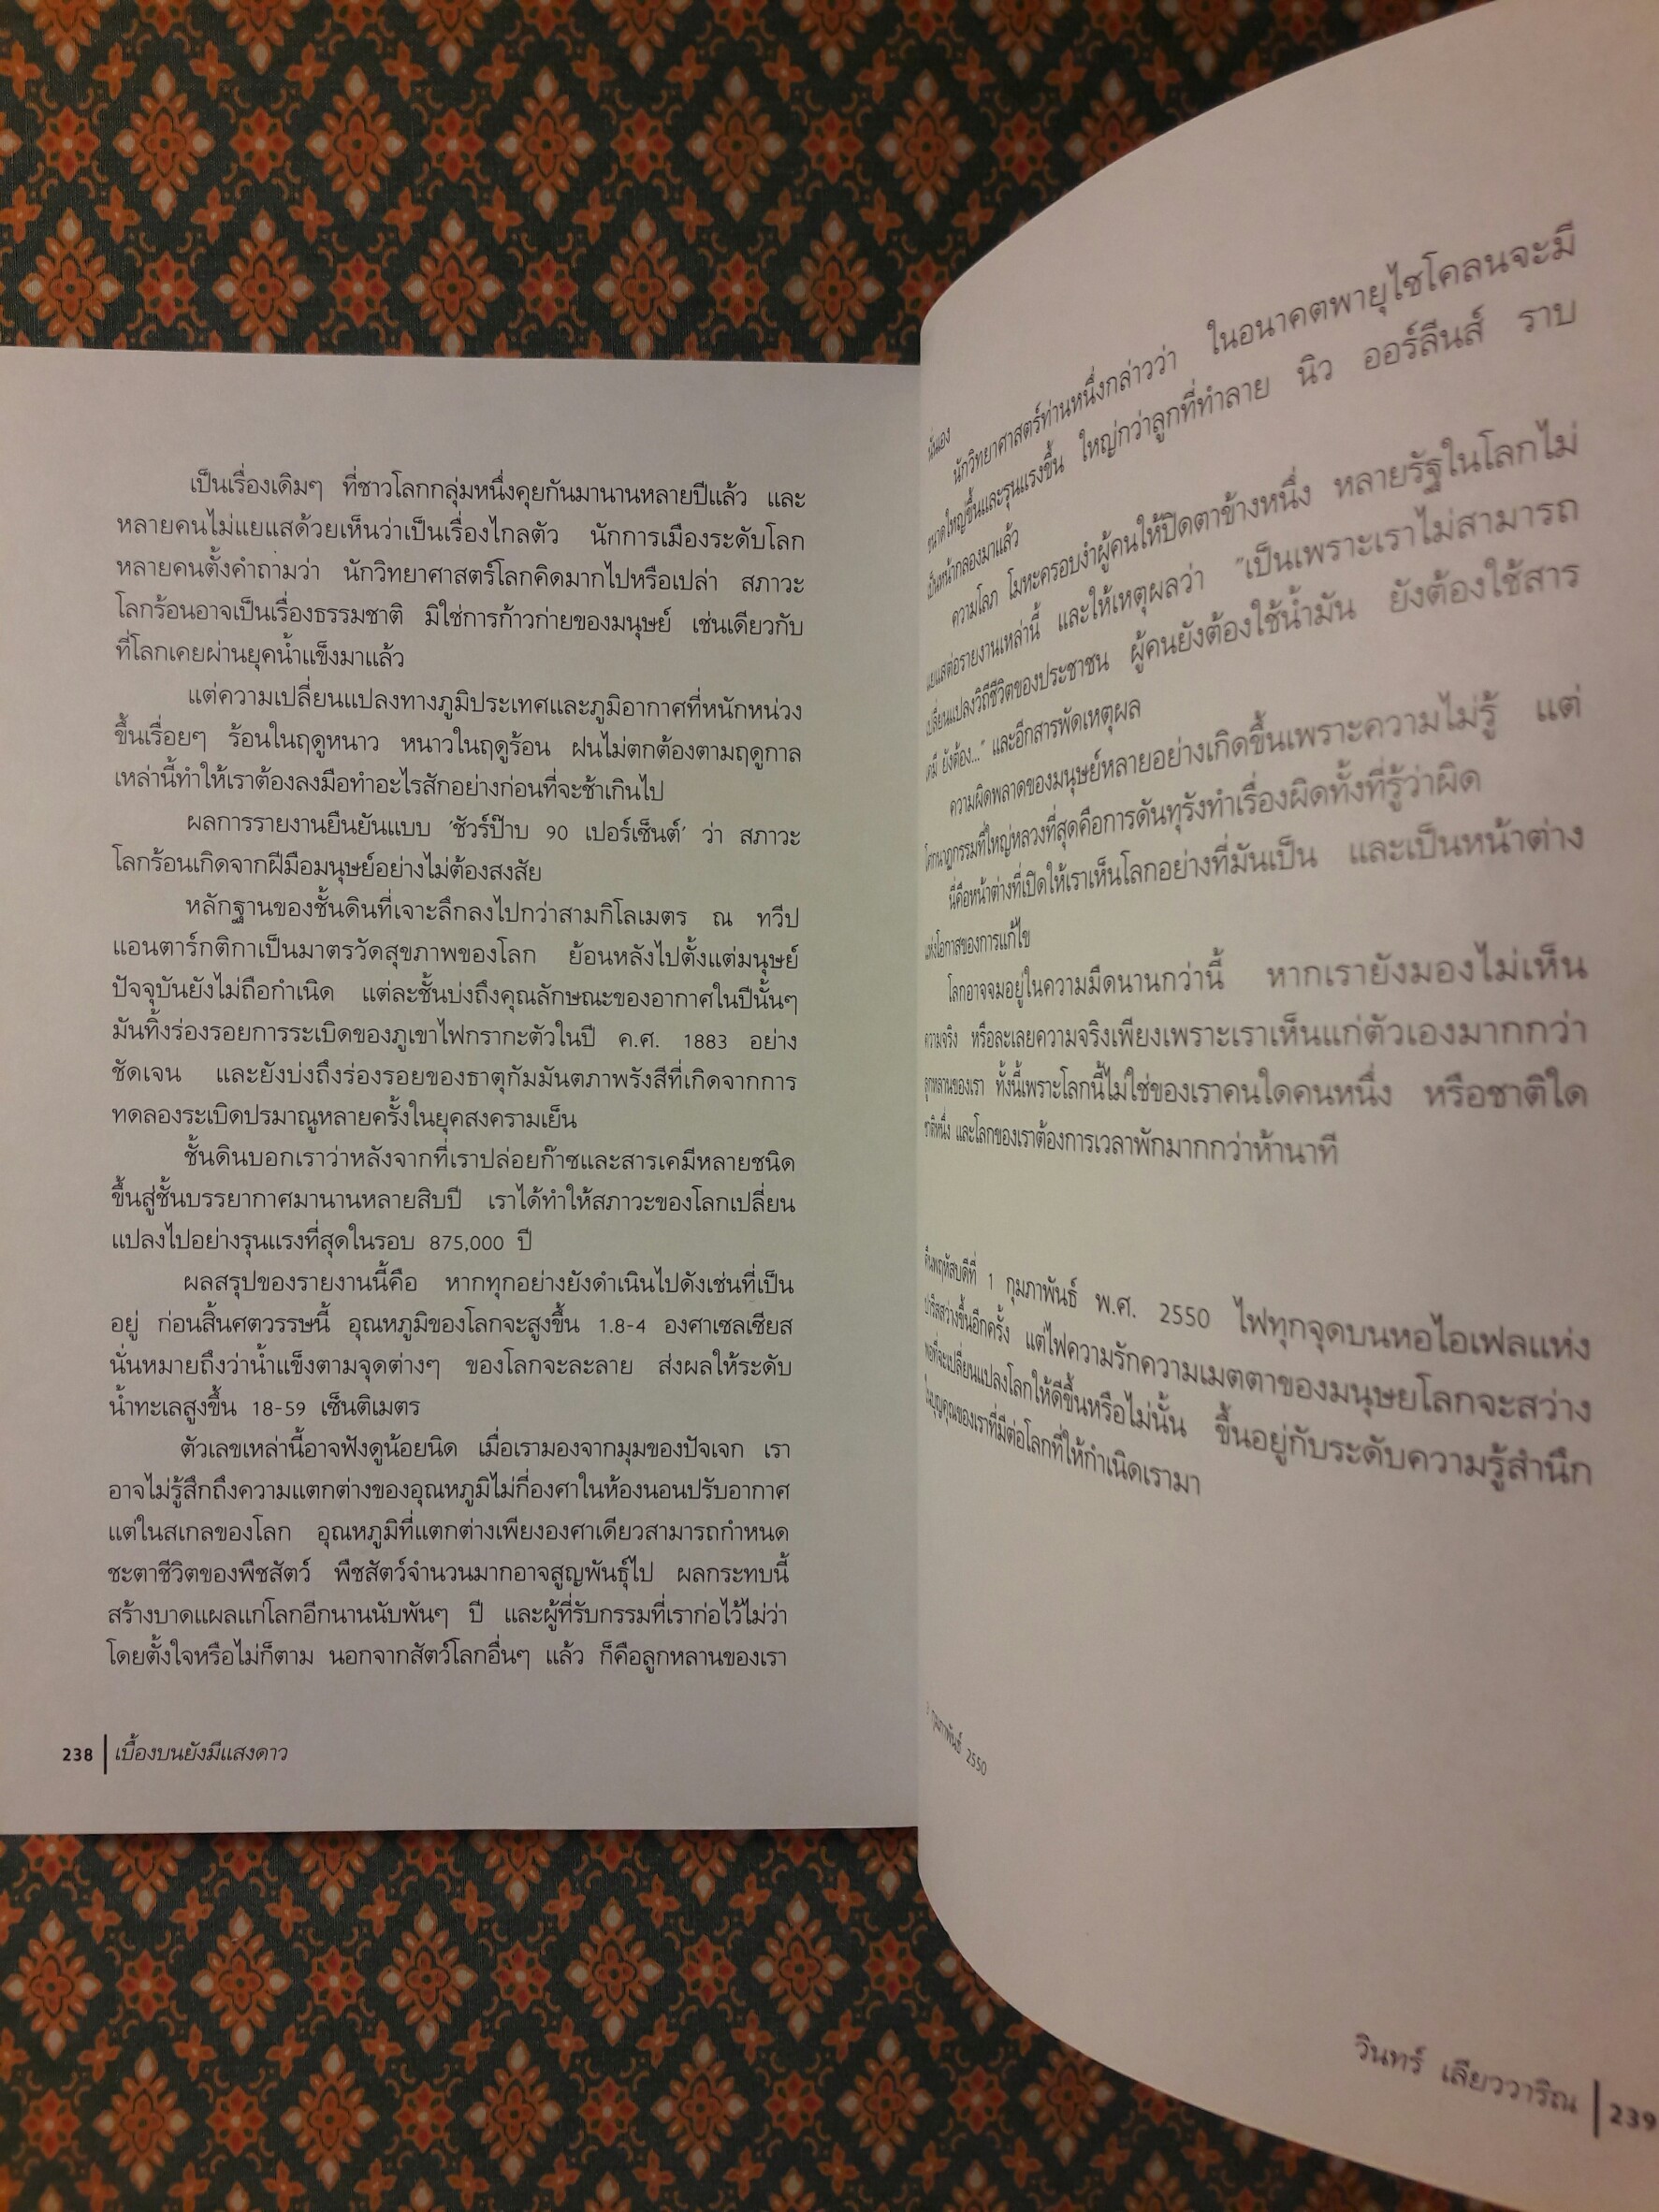 เป็นเรื่องเดิมๆ ที่ชาวโลกกลุ่มหนึ่งคุยกันมานานหลายปีแล้ว และ
หลายคนไม่แยแสด้วยเห็นว่าเป็นเรื่องไกลตัว นักการเมืองระดับโลก
หลายคนตั้งคำถามว่า นักวิทยาศาสตร์โลกคิดมากไปหรือเปล่า สภาวะ
โลกร้อนอาจเป็นเรื่องธรรมชาติ มิใช่การก้าวก่ายของมนุษย์ เช่นเดียวกับ
ที่โลกเคยผ่านยุคน้ำแข็งมาแล้ว
แต่ความเปลี่ยนแปลงทางภูมิประเทศและภูมิอากาศที่หนักหน่วง
ขึ้นเรื่อยๆ ร้อนในฤดูหนาว หนาวในฤดูร้อน ฝนไม่ตกต้องตามฤดูกาล
เหล่านี้ทำให้เราต้องลงมือทำอะไรสักอย่างก่อนที่จะช้าเกินไป
ผลการรายงานยืนยันแบบ 'ชัวร์ป๊าบ 90 เปอร์เซ็นต์' ว่า สภาวะ
โลกร้อนเกิดจากฝีมือมนุษย์อย่างไม่ต้องสงสัย
หลักฐานของชั้นดินที่เจาะลึกลงไปกว่าสามกิโลเมตร ณ ทวีป
แอนตาร์กติกาเป็นมาตรวัดสุขภาพของโลก ย้อนหลังไปตั้งแต่มนุษย์
ปัจจุบันยังไม่ถือกำเนิด แต่ละชั้นบ่งถึงคุณลักษณะของอากาศในปีนั้นๆ
มันทิ้งร่องรอยการระเบิดของภูเขาไฟกรากะตัวในปี ค.ศ. 1883 อย่าง
ชัดเจน และยังบ่งถึงร่องรอยของธาตุกัมมันตภาพรังสีที่เกิดจากการ
ทดลองระเบิดปรมาณูหลายครั้งในยุคสงครามเย็น
ชั้นดินบอกเราว่าหลังจากที่เราปล่อยก๊าซและสารเคมีหลายชนิด
ขึ้นสู่ชั้นบรรยากาศมานานหลายสิบปี เราได้ทำให้สภาวะของโลกเปลี่ยน
แปลงไปอย่างรุนแรงที่สุดในรอบ 875,000 ปี
ผลสรุปของรายงานนี้คือ หากทุกอย่างยังดำเนินไปดังเช่นที่เป็น
อยู่ ก่อนสิ้นศตวรรษนี้ อุณหภูมิของโลกจะสูงขึ้น 1.8-4 องศาเซลเซียส
นั่นหมายถึงว่าน้ำแข็งตามจุดต่างๆ ของโลกจะละลาย ส่งผลให้ระดับ
น้ำทะเลสูงขึ้น 18-59 เซ็นติเมตร
ตัวเลขเหล่านี้อาจฟังดูน้อยนิด เมื่อเรามองจากมุมของปัจเจก เรา
อาจไม่รู้สึกถึงความแตกต่างของอุณหภูมิไม่กี่องศาในห้องนอนปรับอากาศ
แต่ในสเกลของโลก อุณหภูมิที่แตกต่างเพียงองศาเดียวสามารถกำหนด
ชะตาชีวิตของพืชสัตว์ พืชสัตว์จำนวนมากอาจสูญพันธุ์ไป ผลกระทบนี้
สร้างบาดแผลแก่โลกอีกนานนับพันๆ ปี และผู้ที่รับกรรมที่เราก่อไว้ไม่ว่า
โดยตั้งใจหรือไม่ก็ตาม นอกจากสัตว์โลกอื่นๆ แล้ว ก็คือลูกหลานของเรา
238 เบื้องบนยังมีแสงดาว
นั่นเอง
นักวิทยาศาสตร์ท่านหนึ่งกล่าวว่า ในอนาคตพายุไซโคลนจะมี
ขนาดใหญ่ขึ้นและรุนแรงขึ้น ใหญ่กว่าลูกที่ทำลาย นิว ออร์ลีนส์ ราบ
เป็นหน้ากลองมาแล้ว
ความโลภ โมหะครอบงำผู้คนให้ปิดตาข้างหนึ่ง หลายรัฐในโลกไม่
แยแสต่อรายงานเหล่านี้ และให้เหตุผลว่า "เป็นเพราะเราไม่สามารถ
เปลี่ยนแปลงวิถีชีวิตของประชาชน ผู้คนยังต้องใช้น้ำมัน ยังต้องใช้สาร
เคมี ยังต้อง..." และอีกสารพัดเหตุผล
ความผิดพลาดของมนุษย์หลายอย่างเกิดขึ้นเพราะความไม่รู้ แต่
โศกนาฏกรรมที่ใหญ่หลวงที่สุดคือการดันทุรังทำเรื่องผิดทั้งที่รู้ว่าผิด
นี่คือหน้าต่างที่เปิดให้เราเห็นโลกอย่างที่มันเป็น และเป็นหน้าต่าง
แห่งโอกาสของการแก้ไข
โลกอาจจมอยู่ในความมืดนานกว่านี้ หากเรายังมองไม่เห็น
ความจริง หรือละเลยความจริงเพียงเพราะเราเห็นแก่ตัวเองมากกว่า
ลูกหลานของเรา ทั้งนี้เพราะโลกนี้ไม่ใช่ของเราคนใดคนหนึ่ง หรือชาติใด
ชาติหนึ่ง และโลกของเราต้องการเวลาพักมากกว่าห้านาที
คืนพฤหัสบดีที่ 1 กุมภาพันธ์ พ.ศ. 2550 ไฟทุกจุดบนหอไอเฟลแห่ง
ปารีสสว่างขึ้นอีกครั้ง แต่ไฟความรักความเมตตาของมนุษยโลกจะสว่าง
พอที่จะเปลี่ยนแปลงโลกให้ดีขึ้นหรือไม่นั้น ขึ้นอยู่กับระดับความรู้สำนึก
ในบุญคุณของเราที่มีต่อโลกที่ให้กำเนิดเรามา
กุมภาพันธ์ 2550
วินทร์ เลียววาริณ 239